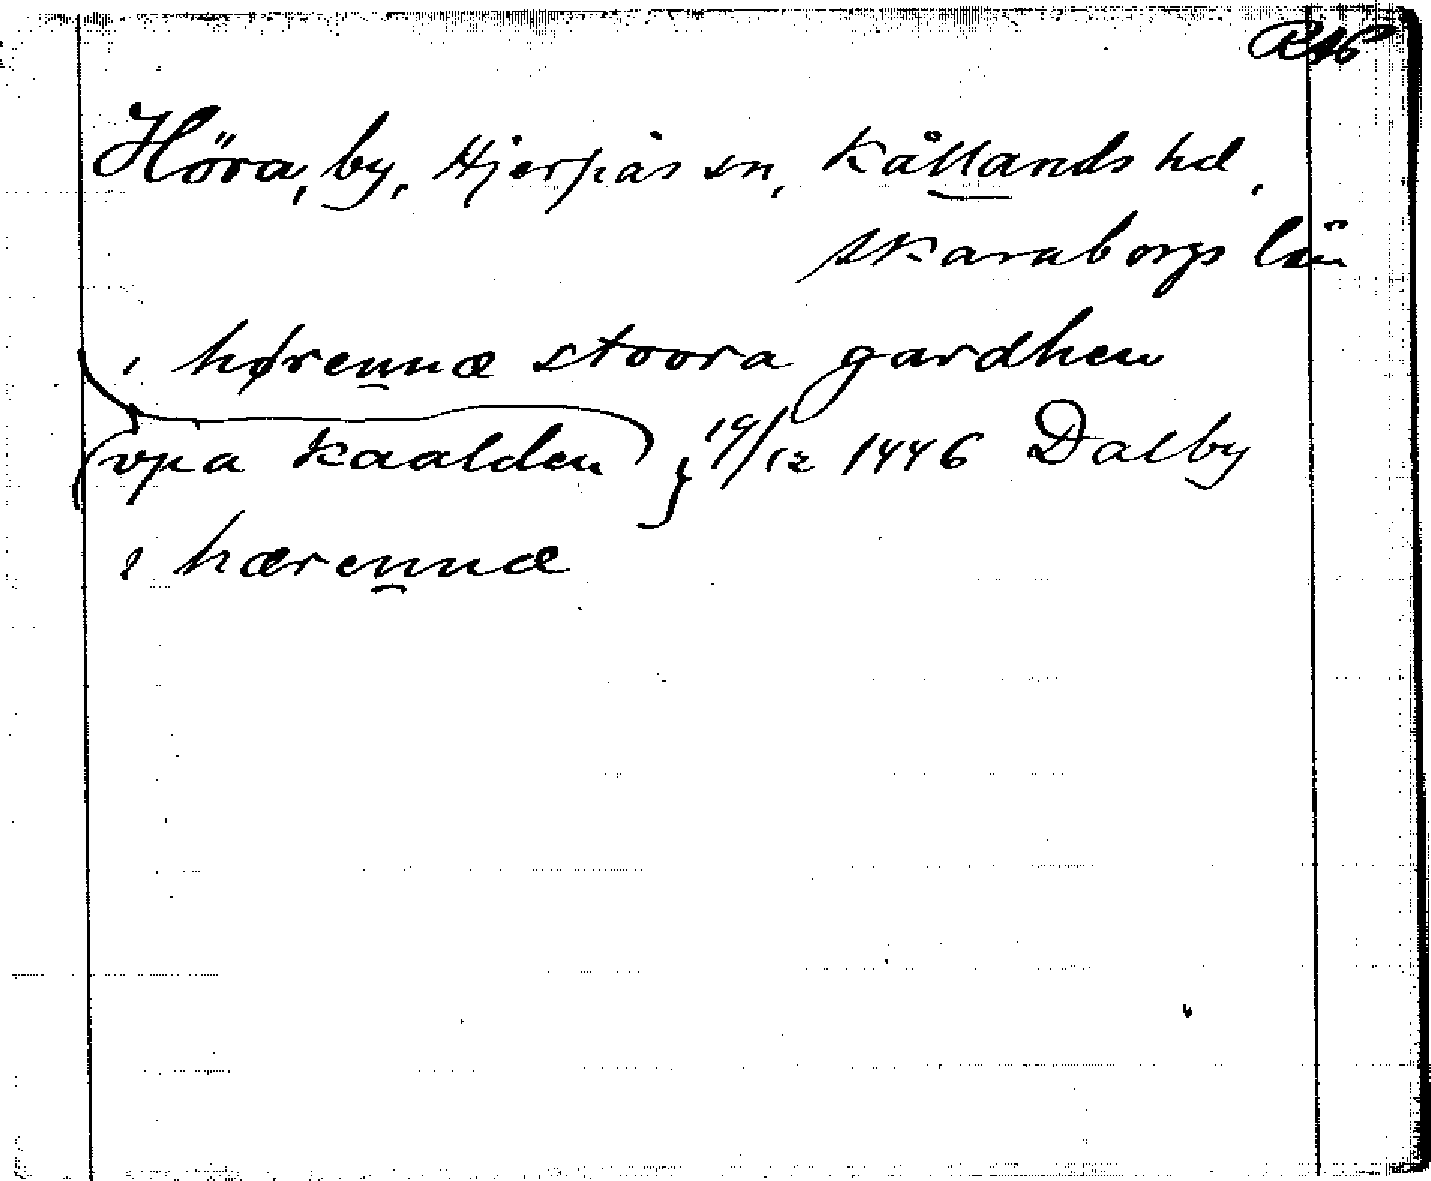 RAP
Höra, by, Hjerpås sn, Kållands hd,
Skaraborgs län
i hørennæ stoora gardhen
vpa kaalden } 19/12 1446 Dalby
i hærennæ